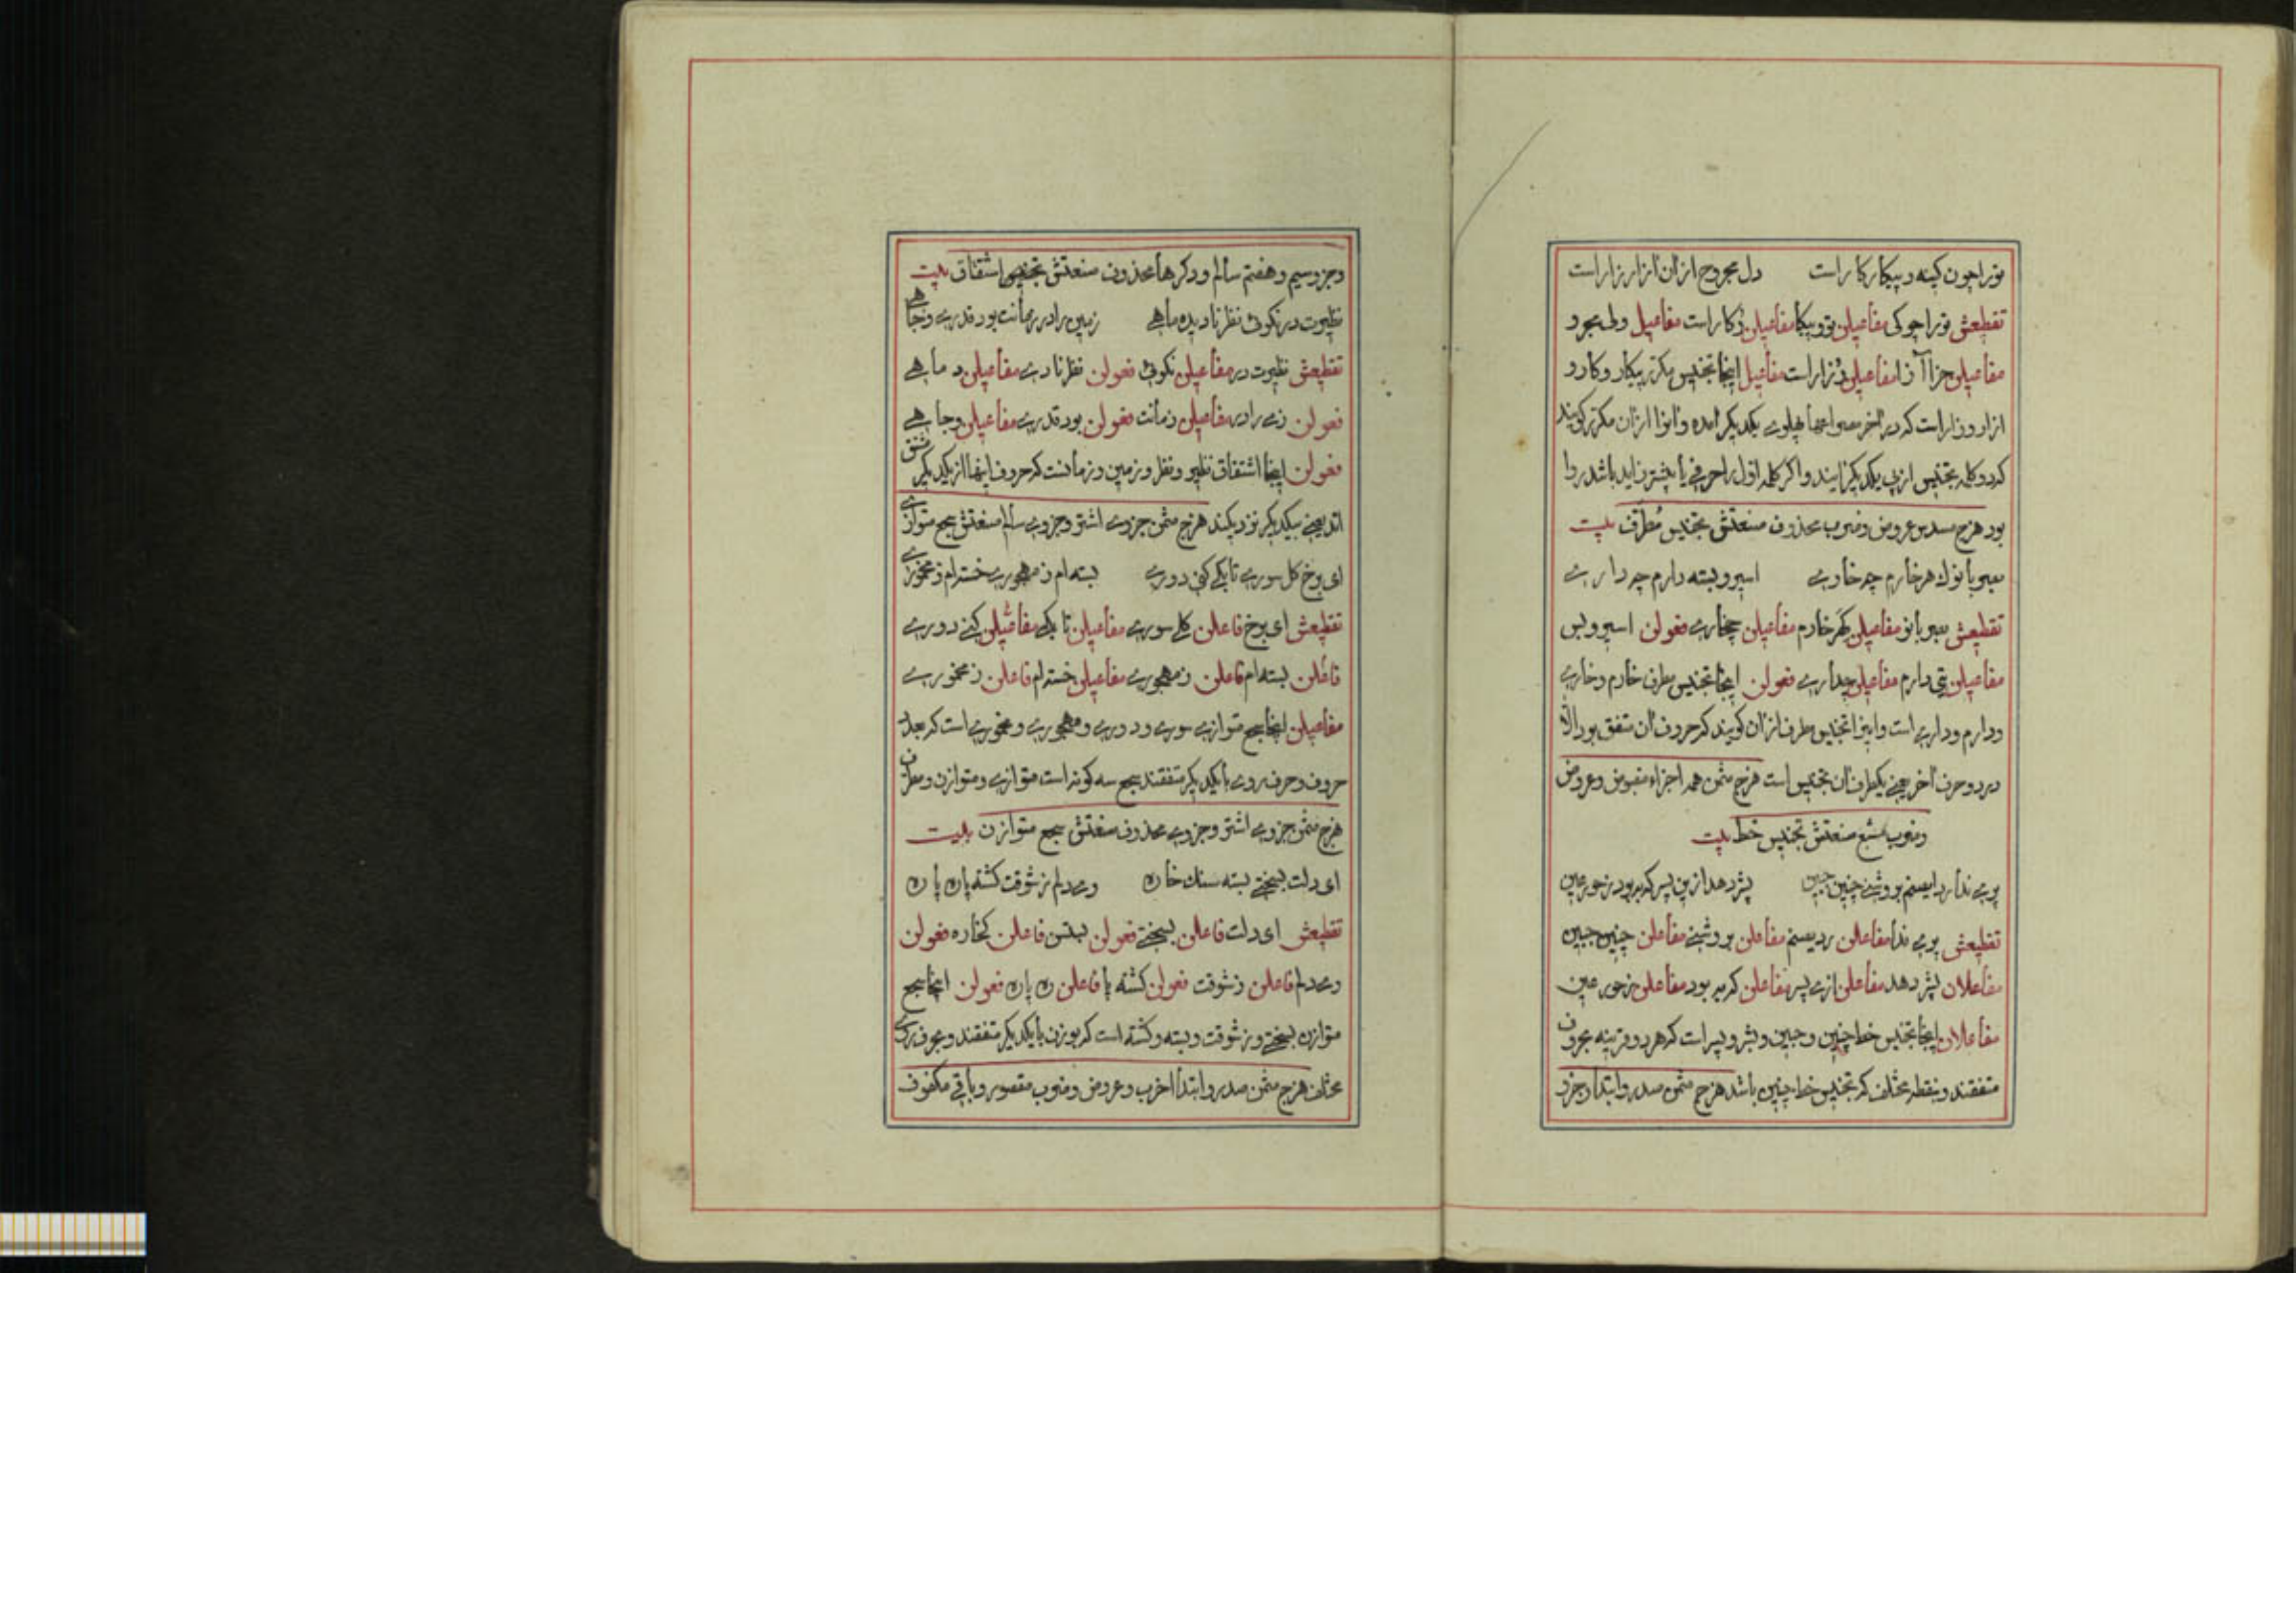 ترا چون کینه و پیکار کار است دل مجروح ازان ازار زار است
تقطیعش ترا چو کی مفاعیلن نؤ و پیکا مفاعیلن رُکار است مفاعیل ولی مجرو
مفاعیلن حزاآ زا مفاعیلن رُزار است مفاعیل اینجا تجنیس مکرر پیکار و کار و
ازار و زار است که در اخر مصراعها پهلوی یکدیکر امده و انرا ازان مکرر کویند
که دو کلمه تجنیس از پی یکدیکر ایند و اکر کلمه اول را حرفی یا بیشتر زاید باشد روا
بود هزج مسدس عروض و ضرب محذوف صنعتش تجنیس مُطرّف بیت
بصبر با توک هر خارم چه خاری اسیر و بسته دارم چه داری
تقطیعش بصبر با تو مفاعیلن کهر خارم مفاعیلن چخاری فعولن اسیر و بس
مفاعیلن تی دارم مفاعیلن چداری فعولن اینجا تجنیس مطرف خارم و خاری
و دارم و داری است و اینرا تجنیس مطرف ازان کویند که حروف ان متفق بود الا
در دو حرف اخر یعنی یکطرف ان تجنیس است هزج مثمن همه اجزاء مقبوض و عروض
و ضرب مسبّع صنعتش تجنیس خط بیت
پری ندارد ایصنم بروشنی چنین جبین بشر دهد ازین پسر که به بود ز حور عین
تقطیعش پری ندا مفاعلن ردیصنم مفاعلن بروشنی مفاعلن چنین جبین
مفاعلان بشر دهد مفاعلن ازی پسر مفاعلن که به بود مفاعلن ز حور عین
مفاعلان اینجا تجنیس خط چنین و جبین و بشر و پسر است که هر دو قرینه بحروف
متفقند و بنقطه مختلف که تجنیس خط چنین باشد هزج مثمن صدر و ابتدا و جزو
و جزو سیم و هفتم سالم و دکرها محذوف صنعتش تجنیس اشتقاق بیت
نظیرت در نکوئی نظر نادیده ماهی زمین را در زمانت بود قدری و جاهی
تقطیعش نظیرت در مفاعیلن نکوئی فعولن نظر نادی مفاعیلن د ماهی
فعولن زمی را در مفاعیلن زمانت فعولن بود قدری مفاعیلن و جاهی
فعولن اینجا اشتقاق نظیر و نظر و زمین و زمانست که حروف اینها از یکدیکر مشتق
اند یعنی بیکدیکر نزدیکند هزج مثمن جزوی اشتر و جزوی سالم صنعتش سجع متوازی
ای برخ کل سوری تا بکی کنی دوری بسته ام ز مهجوری خسته ام ز مخموری
تقطیعش ای برخ فاعلن کلی سوری مفاعیلن تا بکی مفاعیلن کنی دوری
فاعلن بسته ام فاعلن ز مهجوری مفاعیلن خسته ام فاعلن ز مخموری
مفاعیلن اینجا سجع متوازی سوری و دوری و مهجوری و مخموری است که بعدد
حروف و حرف روی با یکدیکر متفقند سجع سه کونه است متوازی و متوازن و مطرف
هزج مثمن جزوی اشتر و جزوی محذوف صنعتش سجع متوازن بیت
ای دلت بسختی بسته سنک خاره وی دلم ز شوقت کشته پاره پاره
تقطیعش ای دلت فاعلن بسختی فعولن بستس فاعلن کخاره فعولن
وی دلم فاعلن ز شوقت فعولن کشته پا فاعلن ره پاره فعولن اینجا سجع
متوازن بسختی و ز شوقت و بسته و کشته است که بوزن با یکدیکر متفقند و بحرف روی
مختلف هزج مثمن صدر و ابتدا اخرب و عروض و ضرب مقصور و باقی مکفوف